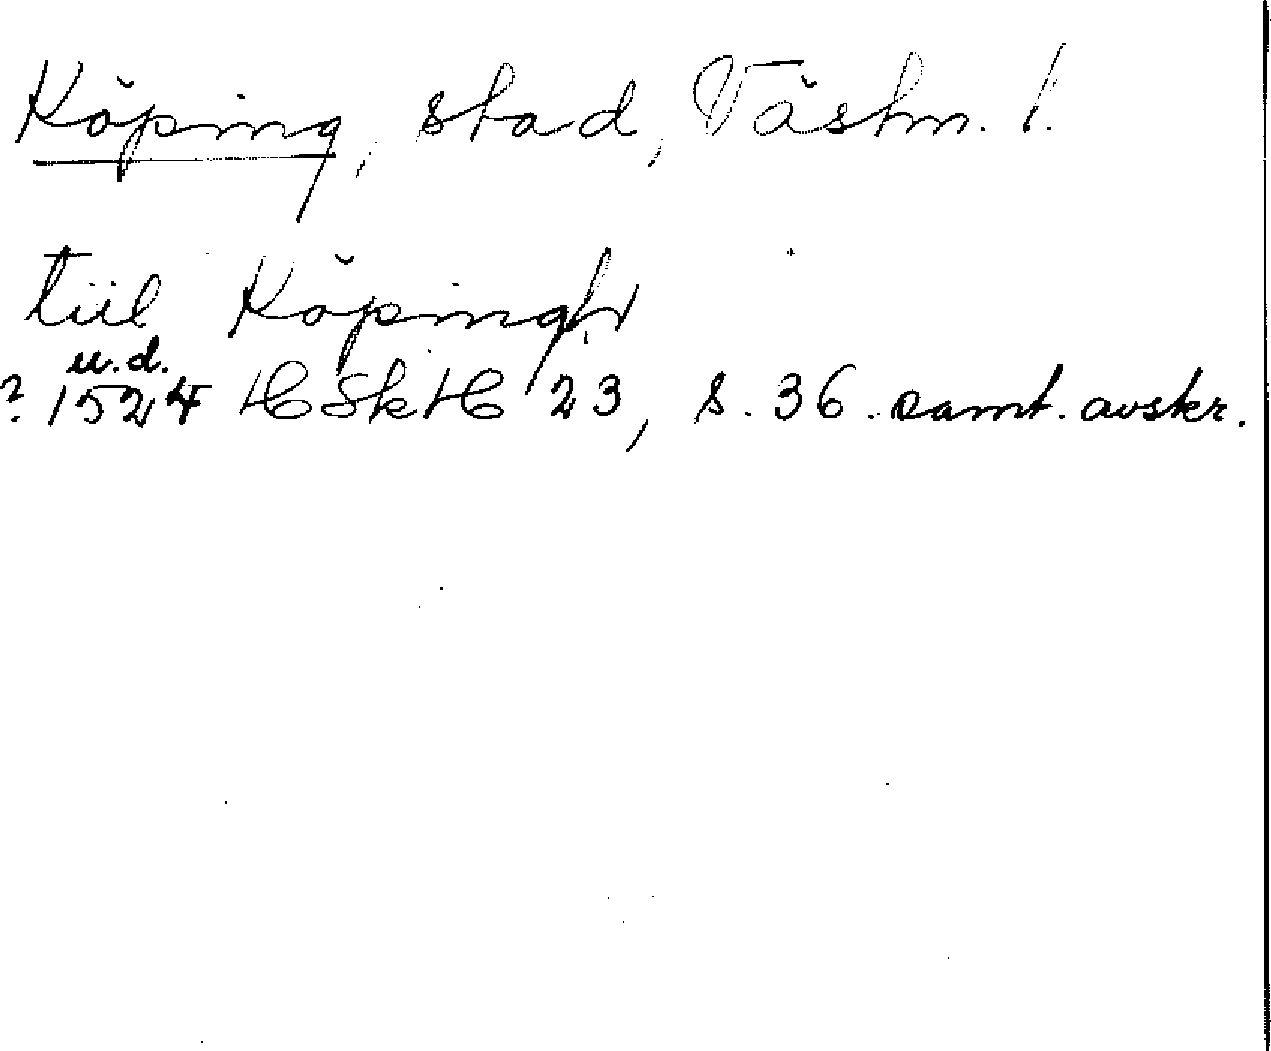 Köping, stad, Västm. l.
tiil Köpingh
u.d.
? 1524 HSkH 23, s. 36. samt. avskr.